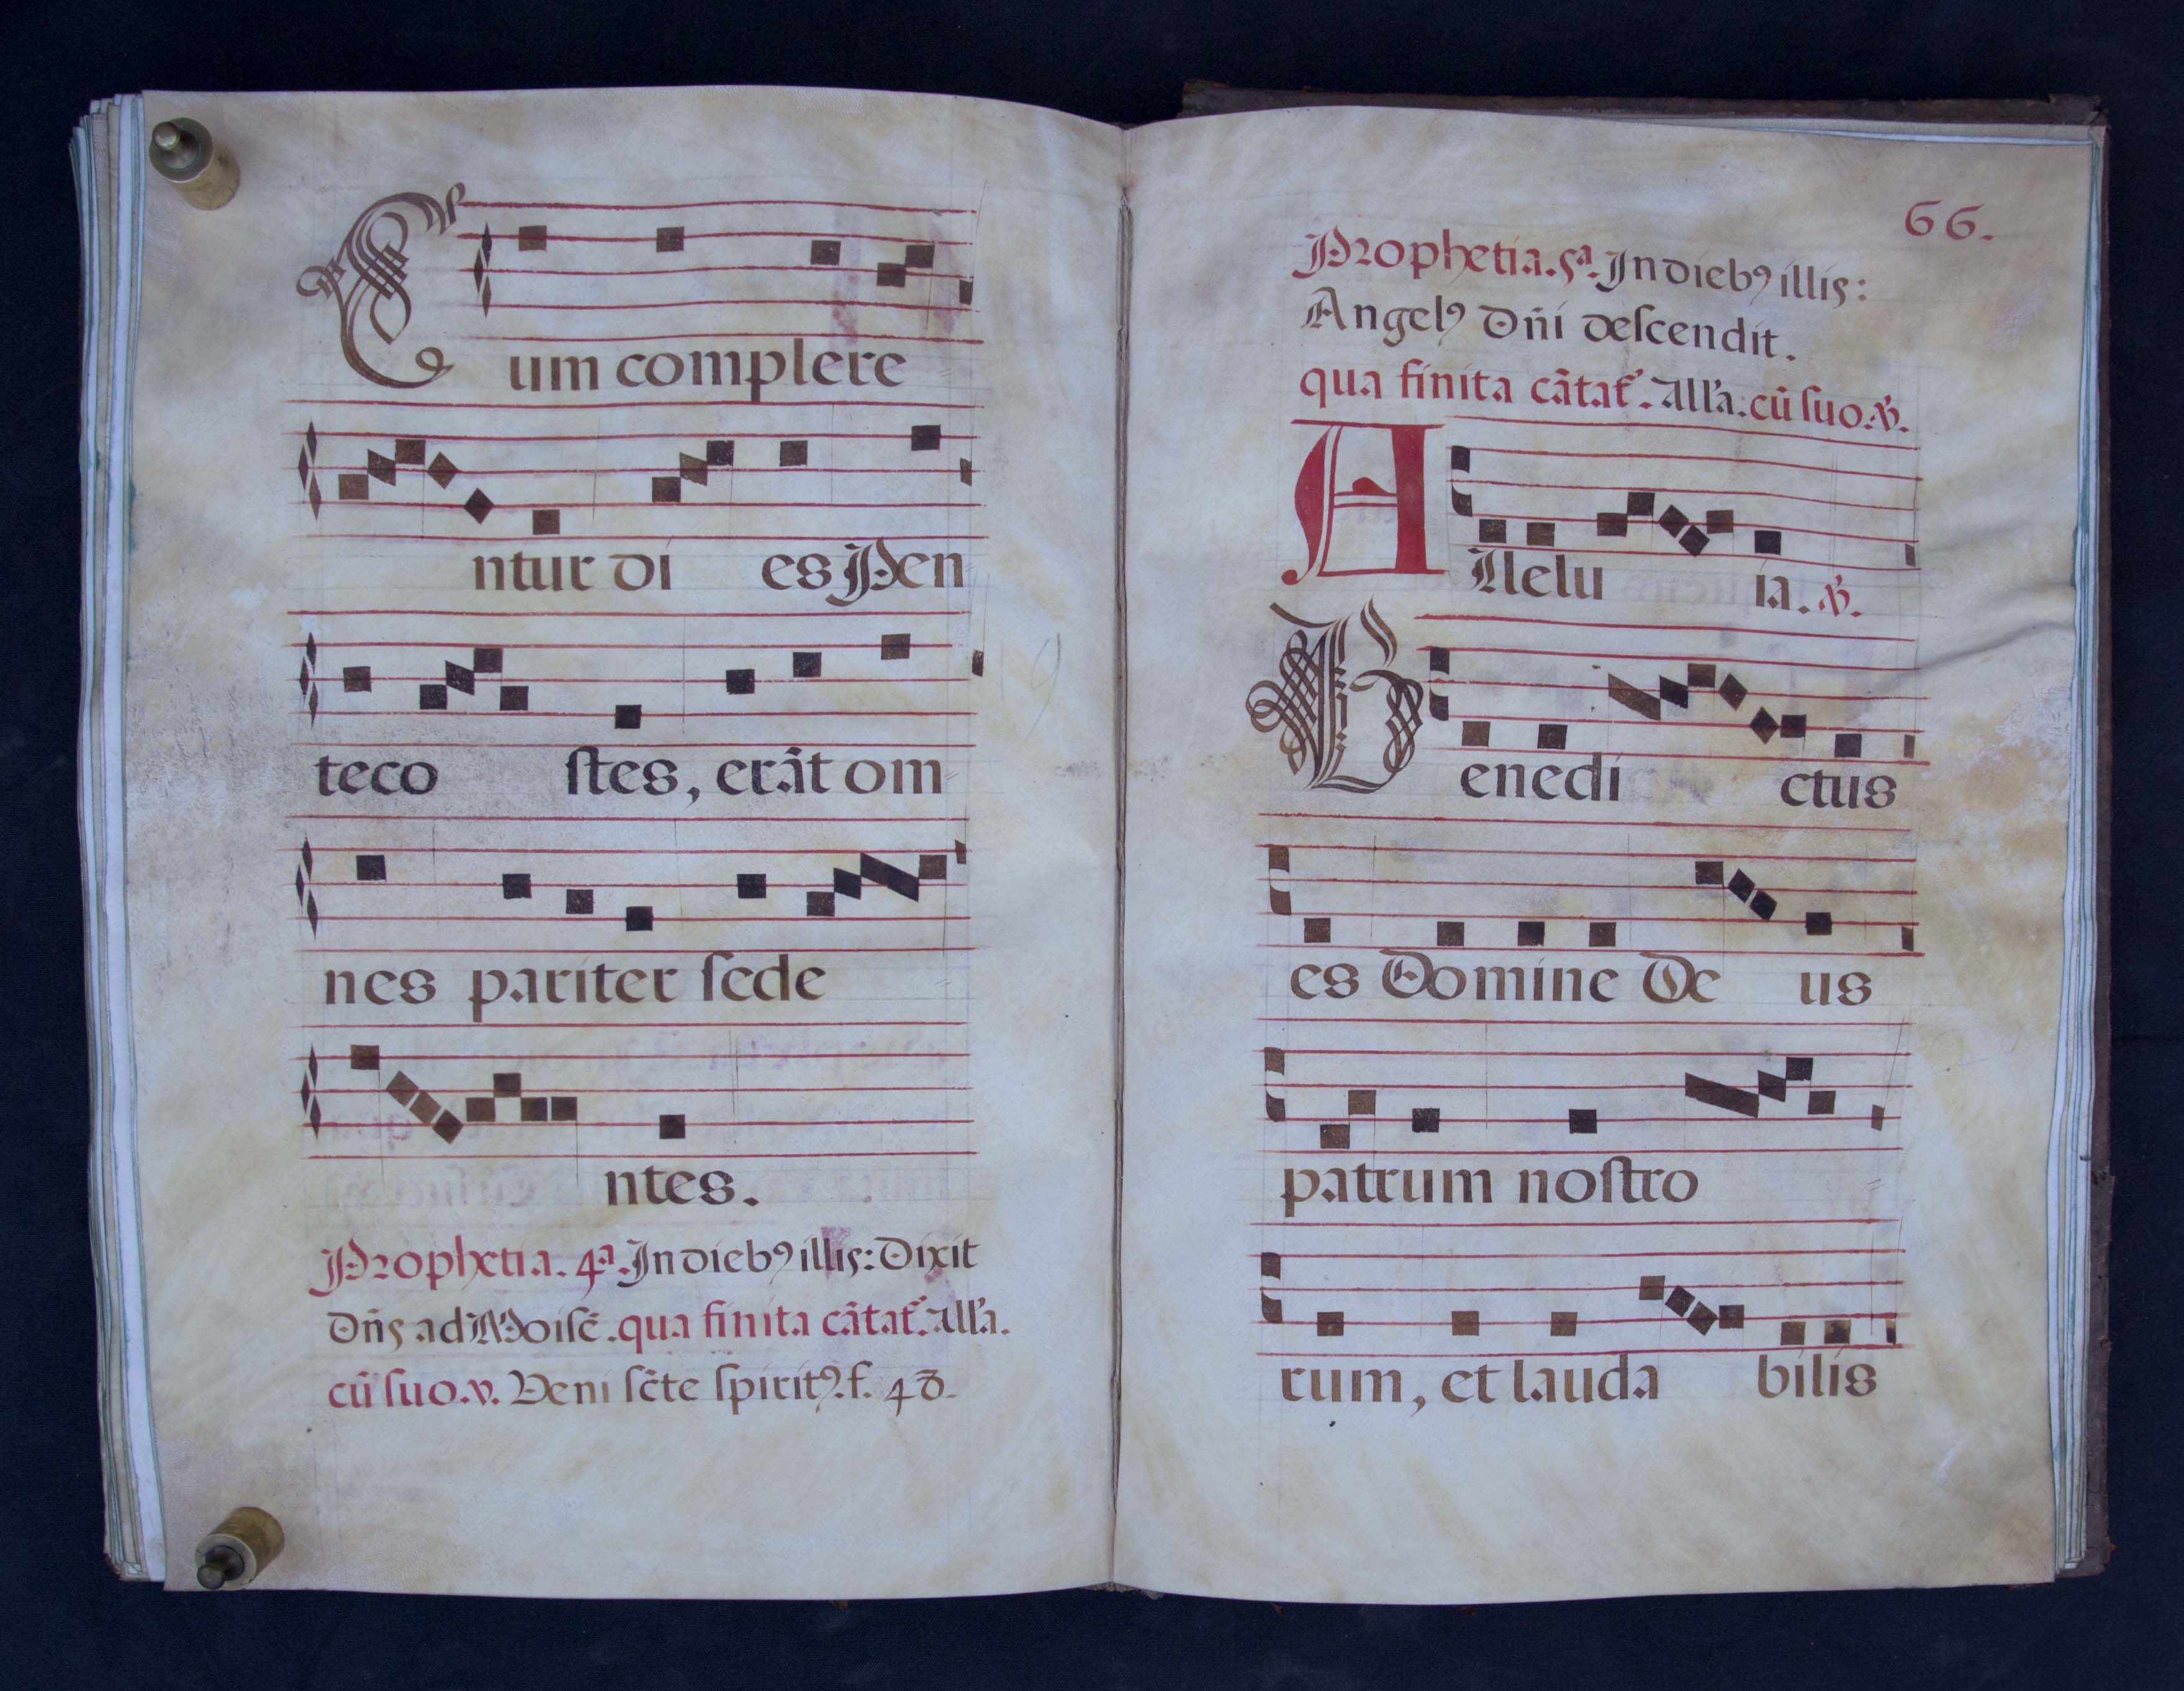 Cum complere
ntur di es Pen
teco ſtes, erãt om
nes pariter ſede
ntes.
Prophetia. 4ª. In diebꝰ illis: Dixit
Dñs ad Moiſẽ. qua finita cãtat᷒. All'a.
cũ ſuo. ℣. Veni ſcẽte ſpiritꝰ. f. 48.
66.
Prophetia. 5ª. In diebꝰ illis:
Angelꝰ Dñi deſcendit.
qua finita cãtat᷒. All'a. cũ ſuo. ℣.
Allelu ia. ℣.
Benedi ctus
es Domine De us
patrum noſtro
rum, et lauda bilis